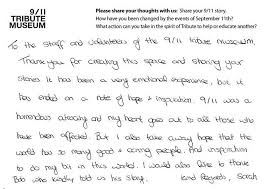 9/11
TRIBUTE
MUSEUM
Please share your thoughts with us: Share your 9/11 story.
How have you been changed by the events of September 11th?
What action can you take in the spirit of Tribute to help or educate another?
To the staff and volunteers of the 9/11 tribute museum,
Thank you for creating this space and sharing your
stories. It has been a very emotional experience, but it
has ended on a note of hope + inspiration. 9/11 was a
horrendous atrocity and my heart goes out to all those who
have been affected. But I also take away hope that the
world has so many good + caring people. And inspiration
to do my bit in this world. I would also like to thank
Bob who kindly told us his story. Kind Regards, Sarah